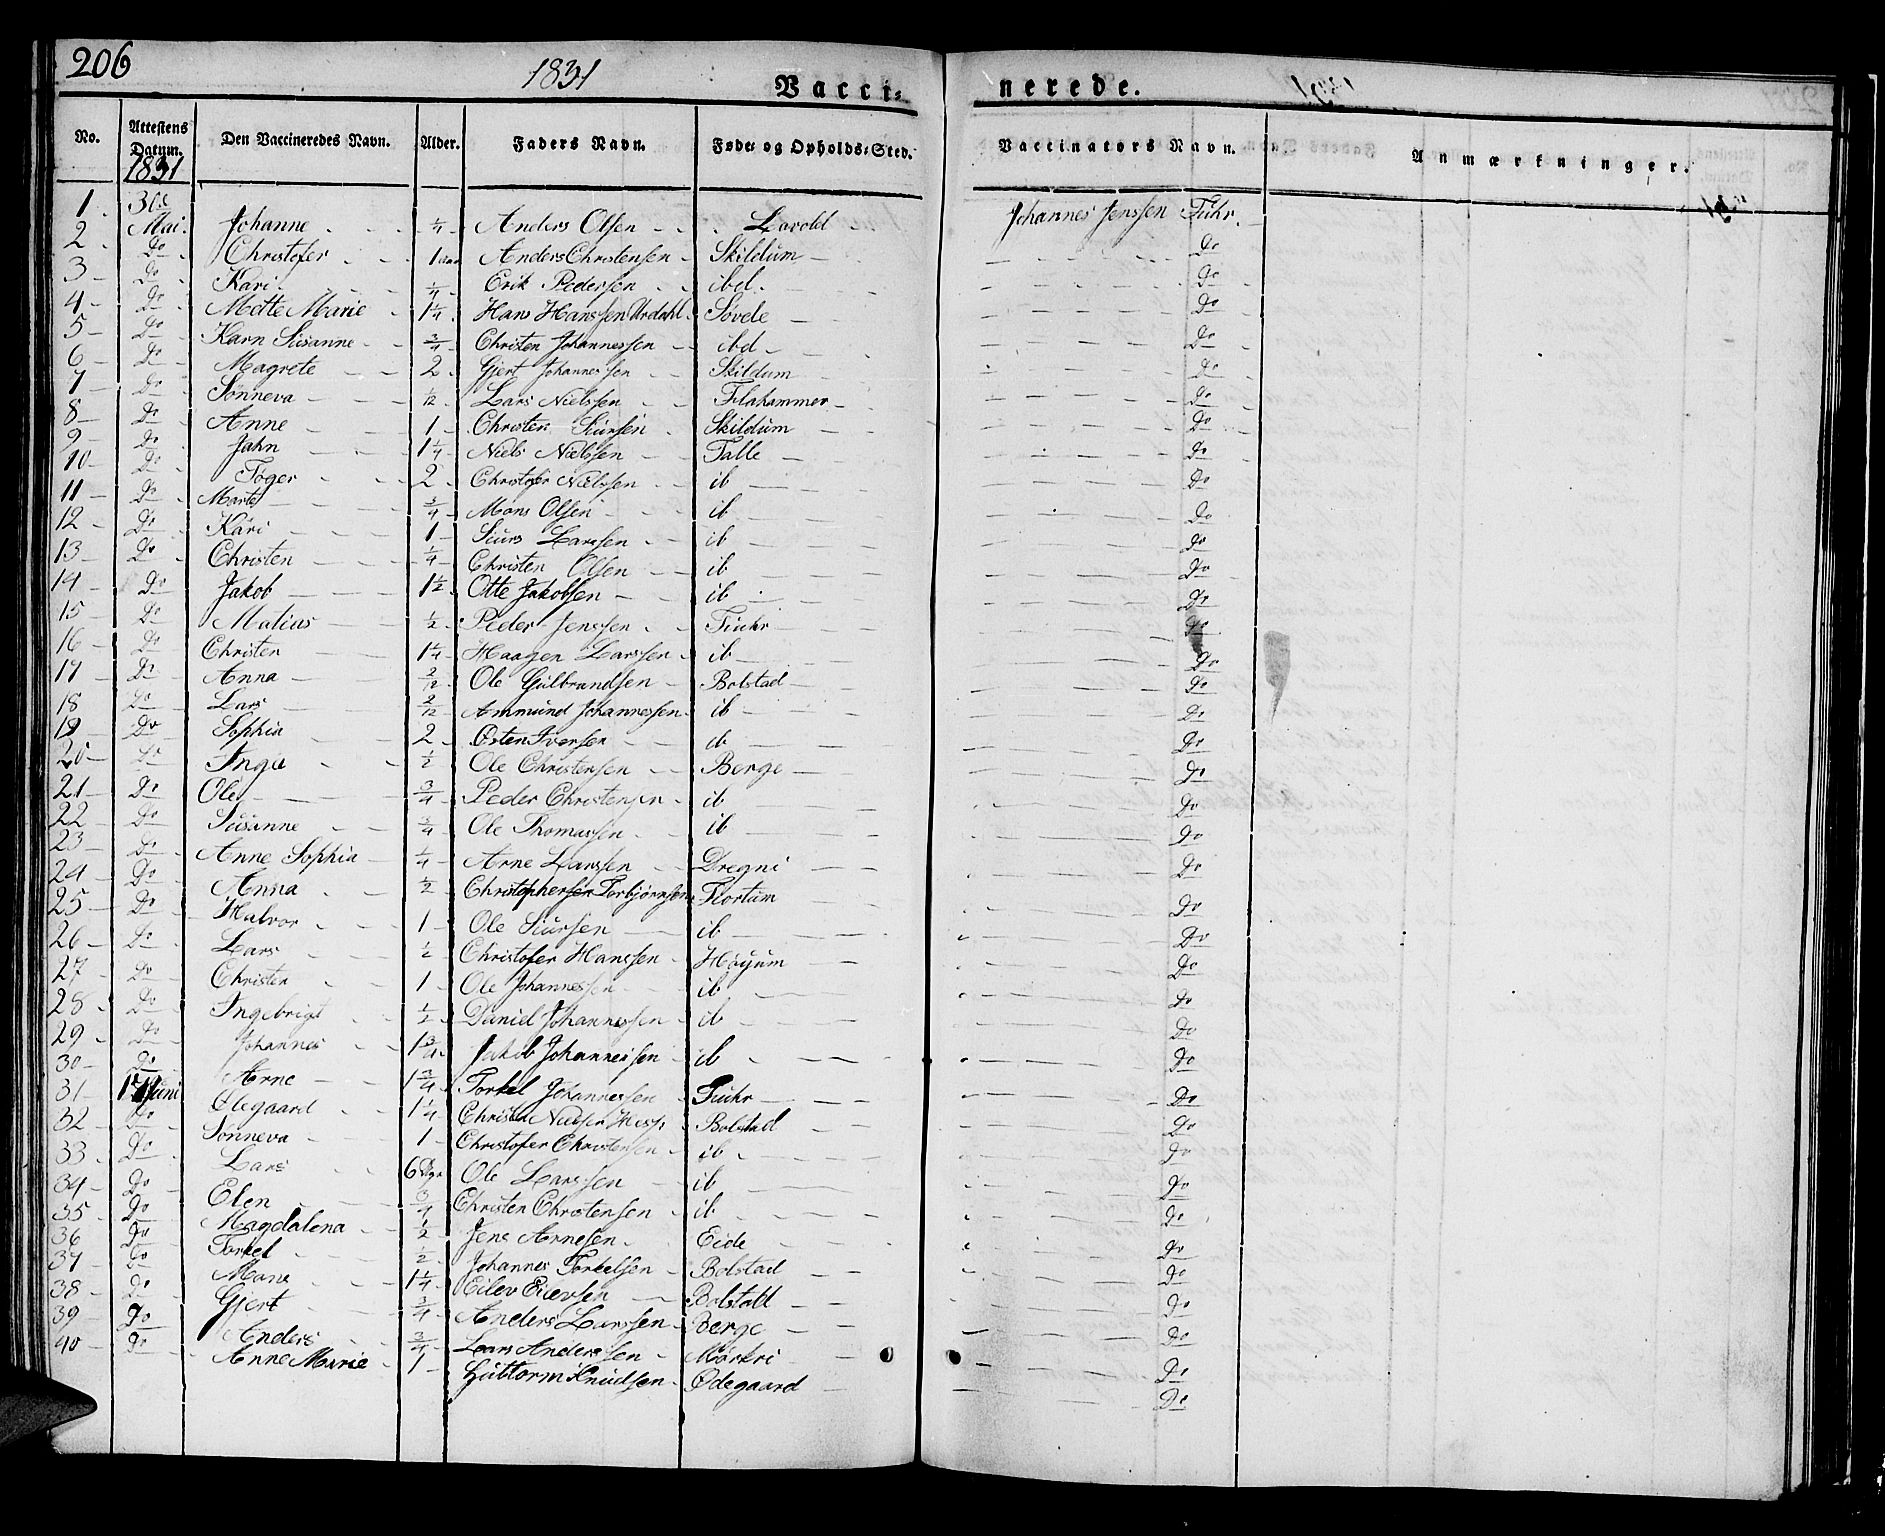 206
1831
Vacci-
nerede.
No.
Attestens Datum.
Den Vaccineredes Navn.
Alder.
Faders Navn.
Føde- og Opholds-Sted.
Vaccinators Navn.
Anmærkninger.
1831
1. 30 Mai. Johanne 1/4 Anders Olsen Lavold Johannes Jenssen Fuhr.
2 Do Christofer 1 Anders Christensen Skildum Do
3 Do Kari 1/4 Erik Pedersen ibd. Do
4 Do Mette Marie 1 1/4 Hans Hanssen Urdahl Søvde Do
5 Do Karn Susanne 3/4 Christen Johannessen ibd Do
6 Do Magrete 2 Gjert Johannessen Skildum Do
7 Do Sønneva 1/12 Lars Nielssen Flahammer Do
8 Do Anne 1 Christen Siursen Skildum Do
9 Do Jahn 1 1/4 Niels Nielssen Talle Do
10 Do Tøger 2 Christofer Nielssen ib Do
11 Do Marte 3/4 Mons Olsen ib Do
12 Do Kari 1 Siurs Larssen ib Do
13 Do Christen 1/4 Christen Olsen ib Do
14 Do Jakob 1 1/2 Otte Jakobsen ib Do
15 Do Matius 1/2 Peder Jenssen Fiuhr Do
16 Do Christen 1 1/4 Haagen Larssen ib Do
17 Do Anna 2/12 Ole Gulbrandsen Bolstad Do
18 Do Lars 2/12 Ammund Johannessen ib Do
19 Do Sophia 2 Østen Iversen ib Do
20 Do Inga 1/2 Ole Christensen Berge Do
21 Do Ole 3/4 Peder Christensen ib Do
22 Do Susanne 3/4 Ole Thomassen ib Do
23 Do Anne Sophia 1/4 Arne Larssen Dregni Do
24 Do Anna 1/2 Christophersen Torbjørnsen Flortum Do
25 Do Halvor 1 Ole Siursen ib Do
26 Do Lars 1/2 Christofer Hanssen Høyum Do
27 Do Christen 1 Ole Johannessen ib Do
28 Do Ingebrigt 1/2 Daniel Johannessen ib Do
29 Do Johannes 1 3/4 Jakob Johannessen ib Do
30 Do Arne 1 3/4 Torkel Johannessen Fiuhr Do
31 17 Juni Ølegaard 1 1/4 Christen Nielsen Bolstad Do
32 Do Sønneva 1 Christofer Christensen ib Do
33 Do Lars 6 Ole Larssen ib Do
34 Do Elen 3/4 Christen Christensen ib Do
35 Do Magdalena 1/2 Jens Arnesen Eide Do
36 Do Torkel 1/2 Johannes Torkelsen Bolstad Do
37 Do 1 1/4 Eilev Bolstad Do
38 Do Gjert 3/4 Anders Larssen Berge Do
39 Do Anders 3/4 Lars Anderssen Mørkri Do
40 Do Anne Marie 1 Guttorm Knudsen Ødegaard Do